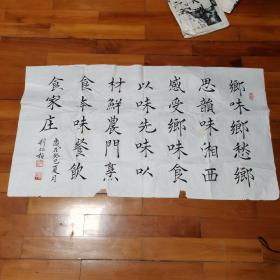 鄉味鄉愁鄉
思韻味湘西
感受鄉味食
以味先味以
材鮮農門烹
食本味餐飲
食家庄
歲在癸巳夏月